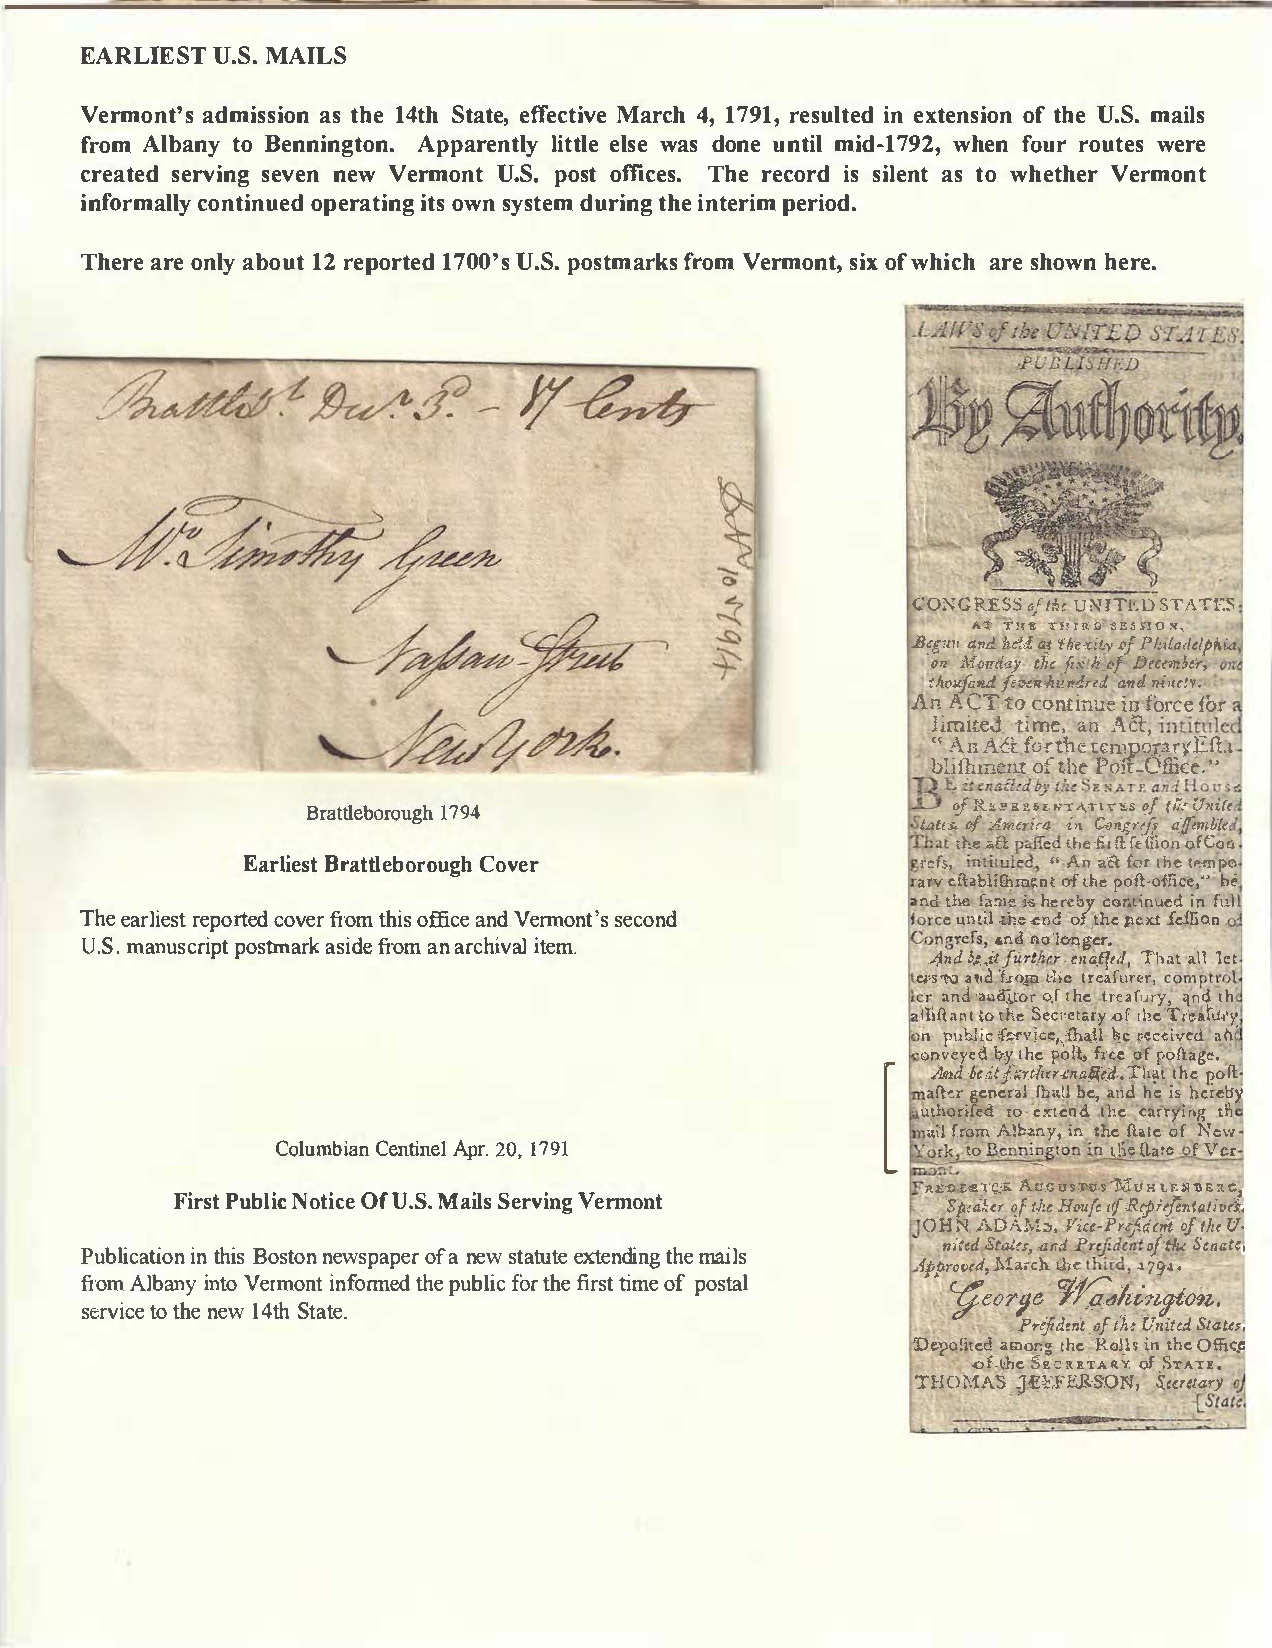 EARLIEST U.S. MAILS
Vermont's admission as the 14th State, effective March 4, 1791, resulted in extension of the U.S. mails
from Albany to Bennington. Apparently little else was done until mid-1792, when four routes were
created serving seven new Vermont U.S. post offices. The record is silent as to whether Vermont
informally continued operating its own system during the interim period.
There are only about 12 reported 1700's U.S. postmarks from Vermont, six of which are shown here.
Brattlbo.^t Decr. 3d. - 17 Cents
Mr. Timothy Green
Naſsau-Street
New York.
10 1794
Brattleborough 1794
Earliest Brattleborough Cover
The earliest reported cover from this office and Vermont's second
U.S. manuscript postmark aside from an archival item.
Columbian Centinel Apr. 20, 1791
First Public Notice Of U.S. Mails Serving Vermont
Publication in this Boston newspaper of a new statute extending the mails
from Albany into Vermont informed the public for the first time of postal
service to the new 14th State.
LAWS of the UNITED STATES.
PUBLISHED
By Authority.
CONGRESS of the UNITED STATES:
AT THE THIRD SESSION,
Begun and held at the city of Philadelphia,
on Monday the ſixth of December, one
thouſand ſeven hundred and ninety.
An ACT to continue in force for a
limited time, an Act, intituled
"An Act for the temporary Eſta-
bliſhment of the Poſt-Office."
BE it enacted by the SENATE and HOUSE
of REPRESENTATIVES of the United
States of America in Congreſs aſſembled,
That the act paſſed the firſt ſeſſion of Con-
greſs, intituled, "An act for the tempo-
rary eſtabliſhment of the poſt-office," be,
and the ſame is hereby continued in full
force until the end of the next ſeſſion of
Congreſs, and no longer.
And be it further enacted, That all let-
ters to and from the treaſurer, comptrol-
ler and auditor of the treaſury, and the
aſſiſtant to the Secretary of the Treaſury,
on public ſervice, ſhall be received and
conveyed by the poſt, free of poſtage.
And be it further enacted, That the poſt-
maſter general ſhall be, and he is hereby
authoriſed to extend the carrying the
mail from Albany, in the ſtate of New-
York, to Bennington in the ſtate of Ver-
mont.
FREDERICK AUGUSTUS MUHLENBERG,
Speaker of the Houſe of Repreſentatives.
JOHN ADAMS, Vice-Preſident of the U-
nited States, and Preſident of the Senate,
Approved, March the third, 1791.
George Waſhington,
Preſident of the United States,
Depoſited among the Rolls in the Office
of the SECRETARY of STATE.
THOMAS JEFFERSON, Secretary of
[State.